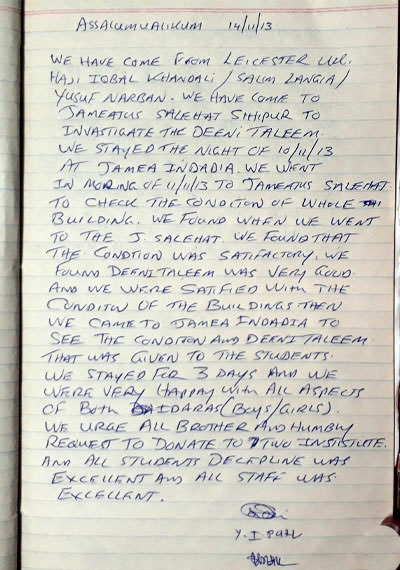 ASSALUMUALIKUM 14/11/13
WE HAVE COME FROM LEICESTER U.K.
HAJI IQBAL KHANDALI / SALIM LANGIA /
YUSUF NARBAN. WE HAVE COME TO
JAMEATUS SALEHAT SIHIPUR TO
INVASTIGATE THE DEENI TALEEM.
WE STAYED THE NIGHT OF 10/11/13
AT JAMEA INDADIA. WE WENT
IN MORING OF 11/11/13 TO JAMEATUS SALEHAT
TO CHECK THE CONDITON OF WHOLE
BUILDING. WE FOUND WHEN WE WENT
TO THE J. SALEHAT. WE FOUND THAT
THE CONDTION WAS SATIFACTORY. WE
FOUND DEENI TALEEM WAS VERY GOOD.
AND WE WERE SATIFIED WITH THE
CONDITON OF THE BUILDINGS THEN
WE CAME TO JAMEA ENDADIA TO
SEE THE CONDITON AND DEENI TALEEM
THAT WAS GIVEN TO THE STUDENTS.
WE STAYED FOR 3 DAYS AND WE
WERE VERY HAPPAY WITH ALL ASPECTS
OF BOTH IDARAS (BOYS/GIRLS).
WE URGE ALL BROTHER AND HUMBLY
REQUEST TO DONATE TO TWO INSTITUTE.
AND ALL STUDENTS DECEPLINE WAS
EXCELLENT AND ALL STAFF WAS
EXCELLENT.
Y. I. PATL